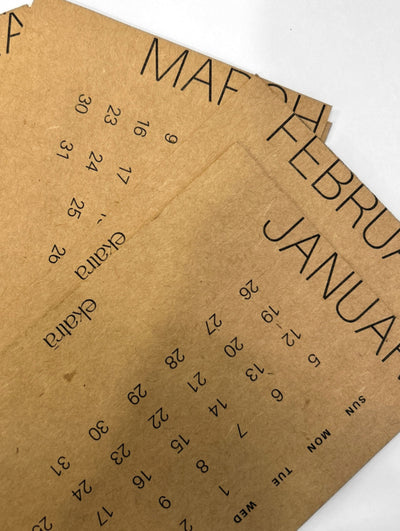 MARCH
9
16 17
23 24 25 26
30 31
ekatra
FEBRUA
ekatra
JANUAR
SUN MON TUE WED
1 2
5 6 7 8 9
12 13 14 15 16 17
19 20 21 22 23 24 25
26 27 28 29 30 31